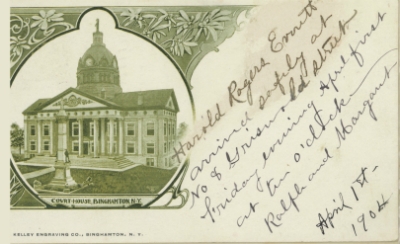 Harold Rogers Everitt
arrived safely at
No 8 Griswold Street
Friday evening April first
at ten o'clock
Ralph and Margaret
April 1st-
1904
COURT-HOUSE, BINGHAMTON, N.Y.
KELLEY ENGRAVING CO., BINGHAMTON, N. Y.